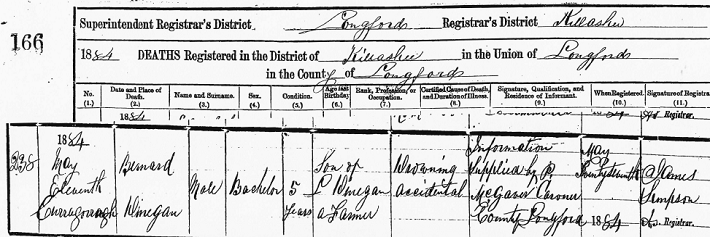 166
Superintendent Registrar's District Longford Registrar's District Killashee
1884 DEATHS Registered in the District of Killashee in the Union of Longford
in the County of Longford
No. (1.) Date and Place of Death. (2.) Name and Surname. (3.) Sex. (4.) Condition. (5.) Age last Birthday. (6.) Rank, Profession, or Occupation. (7.) Certified Cause of Death, and Duration of Illness. (8.) Signature, Qualification, and Residence of Informant. (9.) When Registered. (10.) Signature of Registrar (11.)
1884 Registrar.
1884 Information May
238 May Bernard Son of Drowning supplied by P. James
Eleventh Male Bachelor 5 L Dinegan accidental McGaver Coroner Simpson
Curragoragh Dinegan Years a Farmer County Longford 1884 Registrar.